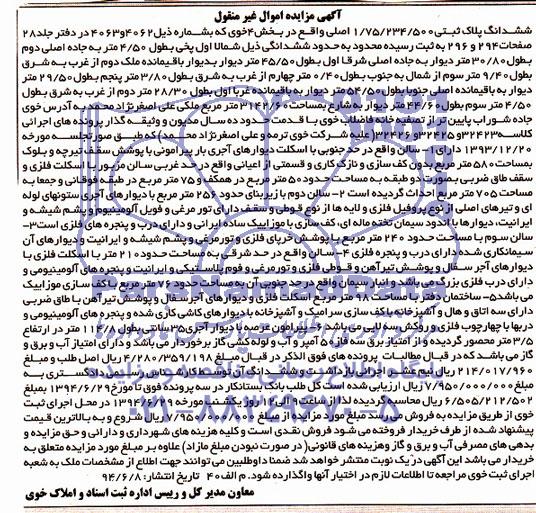 آگهی مزایده اموال غیر منقول
ششدانگ پلاک ثبتی ۱/۷۵/۲۳۴/۵۰۰ اصلی واقع در بخش ۴ خوی که بشماره ذیل ۴۰۶۲ و ۴۰۶۳ در دفتر جلد ۲۸
صفحات ۲۹۴ و ۲۹۶ به ثبت رسیده محدود به حدود ششدانگی ذیل شمالا اول پخی بطول ۴/۵۰ متر به جاده اصلی دوم
بطول ۳۰/۸۰ متر دیوار به جاده اصلی شرقا اول بطول ۴۵/۵۰ متر دیوار بدیوار باقیمانده ملک دوم از غرب به شرق
بطول ۹/۴۰ متر سوم از شمال به جنوب بطول ۰/۴۰ متر چهارم از غرب به شرق بطول ۳/۸۰ متر پنجم بطول ۲۹/۵۰ متر
دیوار به باقیمانده اصلی جنوبا بطول ۵۴/۵۰ متر دیوار به باقیمانده غربا اول بطول ۲۸/۳۰ متر دوم از غرب به شرق بطول
۴/۵۰ متر سوم بطول ۴۴/۶۰ متر دیوار به شارع بمساحت ۳۱۴۲/۶۰ متر مربع ملکی علی اصغرنژاد محمد به آدرس خوی
جاده شوراب پایین تر از تصفیه خانه فاضلاب خوی با قدمت حدود ده سال مدیون و وثیقه گذار پرونده های اجرائی
کلاسه ۳۲۴۲۳ و ۳۲۴۲۵ و ۳۲۴۲۶ (علیه شرکت خوی ترمه و علی اصغرنژاد محمد) که طبق صورتجلسه مورخه
۱۳۹۳/۱۲/۲۰ دارای ۱- سالن واقع در حد جنوبی با اسکلت دیوارهای آجری بار پیرامونی با پوشش سقف تیرچه و بلوک
بمساحت ۵۸۰ متر مربع بدون کف سازی و نازک کاری و قسمتی از اعیانی واقع در حد غربی سالن مزبور با اسکلت فلزی و
سقف طاق ضربی بصورت دو طبقه به مساحت حدود ۵۰ متر مربع در همکف و ۷۵ متر مربع در طبقه فوقانی و جمعا به
مساحت ۷۰۵ متر مربع احداث گردیده است ۲- سالن دوم با زیربنای حدود ۲۵۶ متر مربع با دیوارهای آجری ستونهای لوله
ای و تیرهای اصلی از نوع پروفیل فلزی و لابه ها از نوع قوطی و سقف دارای تور مرغی و فویل آلومینیوم و پشم شیشه و
ایرانیت، دیوارها با اندود سیمان تخته ماله ای، کف سازی با موزاییک ساده ایرانی و دارای درب و پنجره های فلزی است ۳-
سالن سوم با مساحت حدود ۲۴۰ متر مربع با پوشش خرپای فلزی و تورمرغی و پشم شیشه و ایرانیت و دیوارهای آن
سیمانکاری شده دارای درب و پنجره فلزی ۴- سالن واقع در حد شرقی به مساحت حدود ۲۱۰ متر با اسکلت فلزی با
دیوارهای آجر سفال و پوشش تیرآهن و قوطی فلزی و تورمرغی و فوم پلاستیکی و ایرانیت و پنجره های آلومینیومی و
دارای درب فلزی بزرگ می باشد و انبار سیمان واقع در حد جنوبی آن به مساحت حدود ۳۶ متر مربع با کف سازی موزاییک
می باشد ۵- ساختمان دفتر با مساحت ۹۸ متر مربع اسکلت فلزی و دیوارهای آجر سفال و پوشش تیرآهن با طاق ضربی
دارای سه اتاق و هال و آشپزخانه با کف سازی سرامیک و آشپزخانه با دیوارهای کاشی کاری شده و پنجره های آلومینیومی و
دربها با چهارچوب فلزی و روکش سه لایی می باشد ۶- پیرامون عرصه با دیوار آجری ۳۵ سانتی بطول ۱۱۶/۸ متر در ارتفاع
۳/۵ متر محصور گردیده و از امتیاز برق سه فاز ۵۰ آمپر و آب و لوله کشی گاز برخوردار می باشد و دارای امتیاز آب و برق و
گاز می باشد که در قبال مطالبات پرونده های فوق الذکر در قبال مبلغ ۴/۲۸۰/۳۵۹/۱۹۸ ریال اصل طلب و مبلغ
۲۱۴/۰۱۷/۹۶۰ ریال نیم عشر اجرائی بازداشت و ششدانگ آن توسط کارشناس رسمی دادگستری به
مبلغ ۷/۹۵۰/۰۰۰/۰۰۰ ریال ارزیابی شده است کل طلب بانک بستانکار در سه پرونده فوق تا مورخ ۱۳۹۴/۶/۲۹ بمبلغ
۶/۵۰۵/۲۱۲/۵۰۲ ریال محاسبه گردیده لذا از ساعت ۹ الی ۱۲ روز یکشنبه مورخه ۱۳۹۴/۶/۲۹ در محل اجرای ثبت
خوی از طریق مزایده به فروش می رسد مبلغ مورد مزایده از مبلغ ۷/۹۵۰/۰۰۰/۰۰۰ ریال شروع و به بالاترین قیمت
پیشنهاد شده از طرف خریدار فروخته می شود فروش نقدی است و کلیه هزینه های شهرداری و دارائی و حق مزایده و
بدهی های مصرفی آب و برق و گاز و هزینه های قانونی (در صورت نبودن مبلغ مازاد) علاوه بر مبلغ مورد مزایده متعلق به
خریدار می باشد این آگهی در یک نوبت منتشر خواهد شد ضمنا داوطلبین می توانند جهت اطلاع از مشخصات ملک به شعبه
اجرای ثبت خوی مراجعه تا اطلاعات لازم در اختیار آنها واگذارده شود. م الف ۴۰ تاریخ انتشار: ۹۴/۶/۸
معاون مدیر کل و رییس اداره ثبت اسناد و املاک خوی